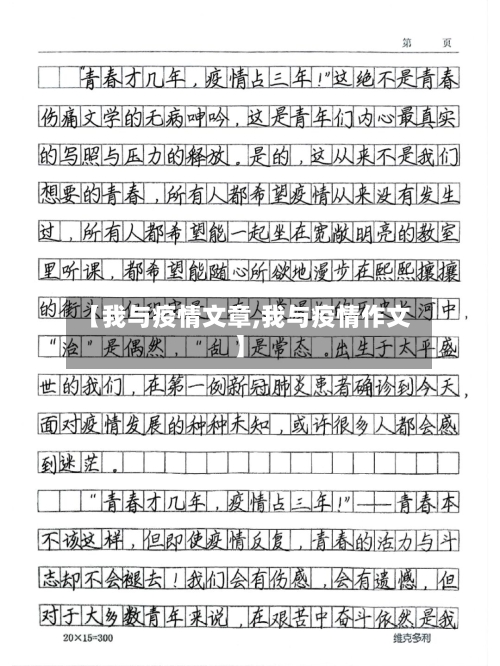 第 页
“青春才几年，疫情占三年！”这绝不是青春
伤痛文学的无病呻吟，这是青年们内心最真实
的写照与压力的释放。是的，这从来不是我们
想要的青春，所有人都希望疫情从来没有发生
过，所有人都希望能一起坐在宽敞明亮的教室
里听课，都希望能随心所欲地漫步在熙熙攘攘
的街
河中，
【我与疫情文章,我与疫情作文
】
“治”是偶然，“乱”是常态。出生于太平盛
世的我们，在第一例新冠肺炎患者确诊到今天，
面对疫情发展的种种未知，或许很多人都会感
到迷茫。
“青春才几年，疫情占三年！”——青春本
不该这样，但即使疫情反复，青春的活力与斗
志却不会褪去！我们会有伤感，会有遗憾，但
对于大多数青年来说，在艰苦中奋斗依然是我
20×15=300 维克多利